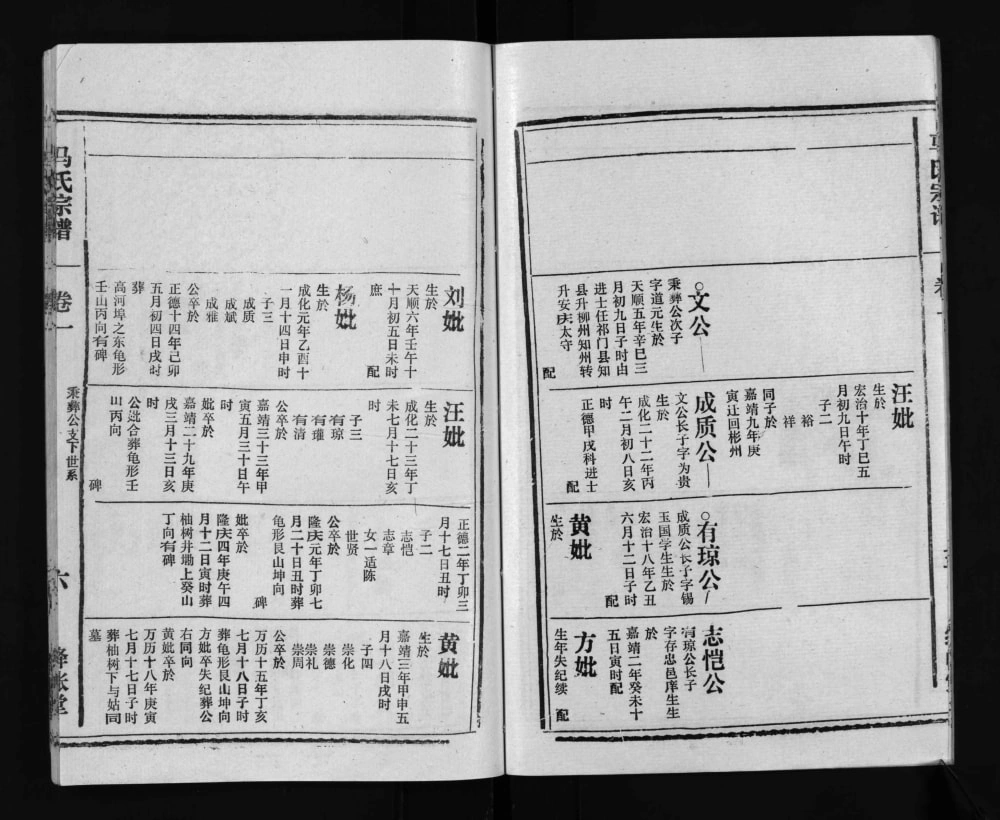 马氏宗谱
卷一
文公
秉彝公次子
字道元生於
天顺五年辛巳三
月初九日子时由
进士任祁门县知
县升柳州知州转
升安庆太守
配
汪妣
生於
宏治十年丁巳五
月初九日午时
子二
裕
祥
同子於
嘉靖九年庚
寅迁回彬州
成质公
文公长子字为贵
生於
成化二十二年丙
午二月初八日亥
时
正德甲戌科进士
配
有琼公
成质公长子字锡
玉国学生生於
宏治十八年乙丑
六月十二日子时
配
黄妣
生於
志恺公
有琼公长子
字存忠邑庠生生
於
嘉靖二年癸未十
五日寅时配
方妣
生年失纪续
配
刘妣
生於
天顺六年壬午十
十月初五日未时
庶
配
杨妣
生於
成化元年乙酉十
一月十四日申时
子三
成质
成斌
成雅
公卒於
正德十四年己卯
五月初四日戌时
葬
高河埠之东龟形
壬山丙向有碑
汪妣
生於
成化二十三年丁
未七月十七日亥
时
子三
有琼
有璀
有清
公卒於
嘉靖三十三年甲
寅五月三十日午
时
妣卒於
嘉靖二十九年庚
戌三月十三日亥
时
公妣合葬龟形壬
山丙向
碑
正德二年丁卯三
月十七日丑时
子二
志恺
志章
女一适陈
世贤
公卒於
隆庆元年丁卯七
月二十日丑时葬
龟形艮山坤向
碑
妣卒於
隆庆四年庚午四
月十二日寅时葬
柚树井塝上癸山
丁向有碑
黄妣
生於
嘉靖三年甲申五
月十八日戌时
子四
崇化
崇德
崇礼
崇周
公卒於
万历十五年丁亥
七月十八日子时
葬龟形艮山坤向
方妣卒失纪葬公
右同向
黄妣卒於
万历十八年庚寅
七月十七日子时
葬柚树下与姑同
墓
秉彝公支下世系
马氏宗谱
卷一
六
绛帐堂